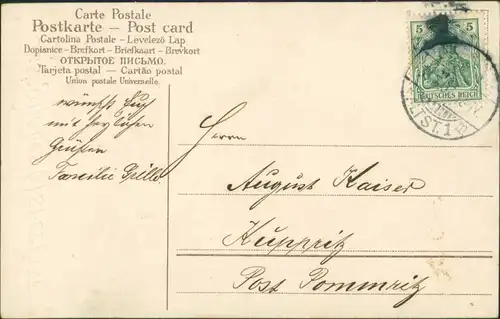 Carte Postale
Postkarte – Post card
Cartolina Postale – Levelező Lap
Dopisnice – Brefkort – Briefkaart – Brevkort
ОТКРЫТОЕ ПИСЬМО.
Tarjeta postal – Cartão postal
Union postale Universelle.
5 5
DEUTSCHES REICH
wünscht Euch
mit herzlichen
Grüßen
Familie
Herrn
August Kaiser
Kuppritz
Post Pommritz